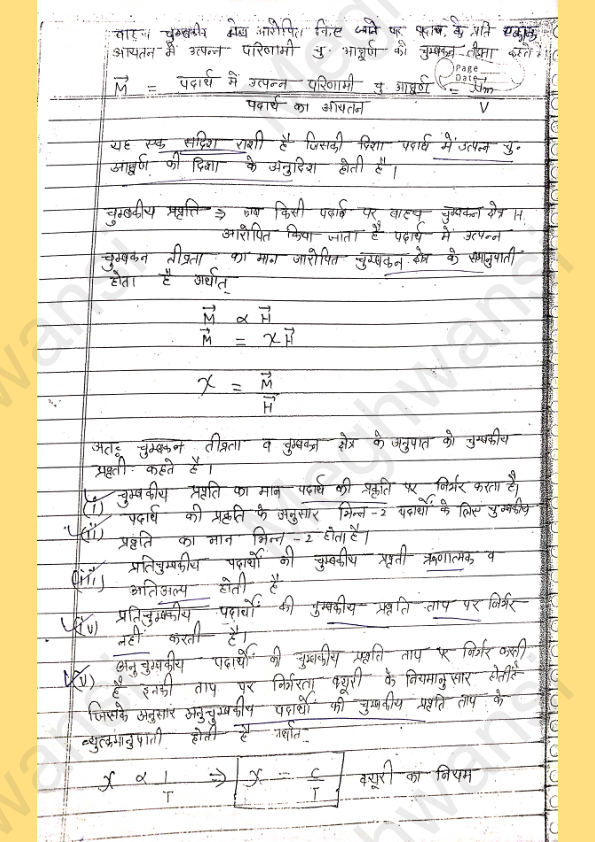 बाह्य चुम्बकीय क्षेत्र आरोपित किए जाने पर पदार्थ के प्रति एकांक
आयतन में उत्पन्न परिणामी चु. आघूर्ण को चुम्बकन तीव्रता कहते
Page
Date
M⃗ = पदार्थ में उत्पन्न परिणामी चु. आघूर्ण / पदार्थ का आयतन = m / V
यह एक सदिश राशी है जिसकी दिशा पदार्थ में उत्पन्न चु.
आघूर्ण की दिशा के अनुदिश होती है।
चुम्बकीय प्रवृत्ति ⇒ जब किसी पदार्थ पर बाह्य चुम्बकन क्षेत्र H
आरोपित किया जाता है पदार्थ में उत्पन्न
चुम्बकन तीव्रता का मान आरोपित चुम्बकन क्षेत्र के समानुपाती
होता है अर्थात्
M⃗ ∝ H⃗
M⃗ = xH⃗
x = M⃗ / H⃗
अतः चुम्बकन तीव्रता व चुम्बकन क्षेत्र के अनुपात को चुम्बकीय
प्रवृती कहते है।
(i) चुम्बकीय प्रवृति का मान पदार्थ की प्रकृति पर निर्भर करता है।
(ii) पदार्थ की प्रकृति के अनुसार भिन्न-2 पदार्थों के लिए चुम्बकीय
प्रवृति का मान भिन्न-2 होता है।
(iii) प्रतिचुम्बकीय पदार्थो की चुम्बकीय प्रवृती ऋणात्मक व
अतिअल्प होती है
(iv) प्रतिचुम्बकीय पदार्थों की चुम्बकीय प्रवृति ताप पर निर्भर
नहीं करती है।
(v) अनुचुम्बकीय पदार्थों की चुम्बकीय प्रवृति ताप पर निर्भर करती
है इनकी ताप पर निर्भरता क्यूरी के नियमानुसार होती है
जिसके अनुसार अनुचुम्बकीय पदार्थों की चुम्बकीय प्रवृति ताप के
व्युत्क्रमानुपाती होती है अर्थात
x ∝ 1/T ⇒ x = C/T क्यूरी का नियम
Meghwansi